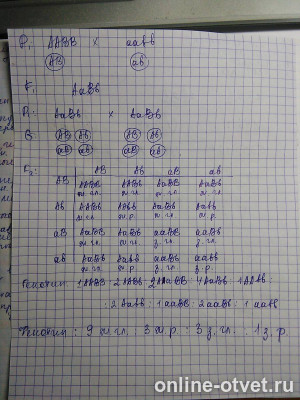 P₁ AABB × aabb
AB ab
F₁ AaBb
P₂: AaBb × AaBb
G AB Ab AB Ab
aB ab aB ab
F₂: AB Ab aB ab
AB AABB AABb AaBB AaBb
ж.гл. ж.гл. ж.гл. ж.гл.
Ab AABb AAbb AaBb Aabb
ж.гл. ж.р. ж.гл. ж.р.
aB AaBB AaBb aaBB aaBb
ж.гл. ж.гл. з.гл. з.гл.
ab AaBb Aabb aaBb aabb
ж.гл. ж.р. з.гл. з.р.
Генотип: 1AABB : 2AABb : 2AaBB : 4AaBb : 1AAbb :
: 2Aabb : 1aaBB : 2aaBb : 1aabb
Фенотип: 9 ж.гл. : 3 ж.р : 3 з.гл. : 1 з.р.
online-otvet.ru